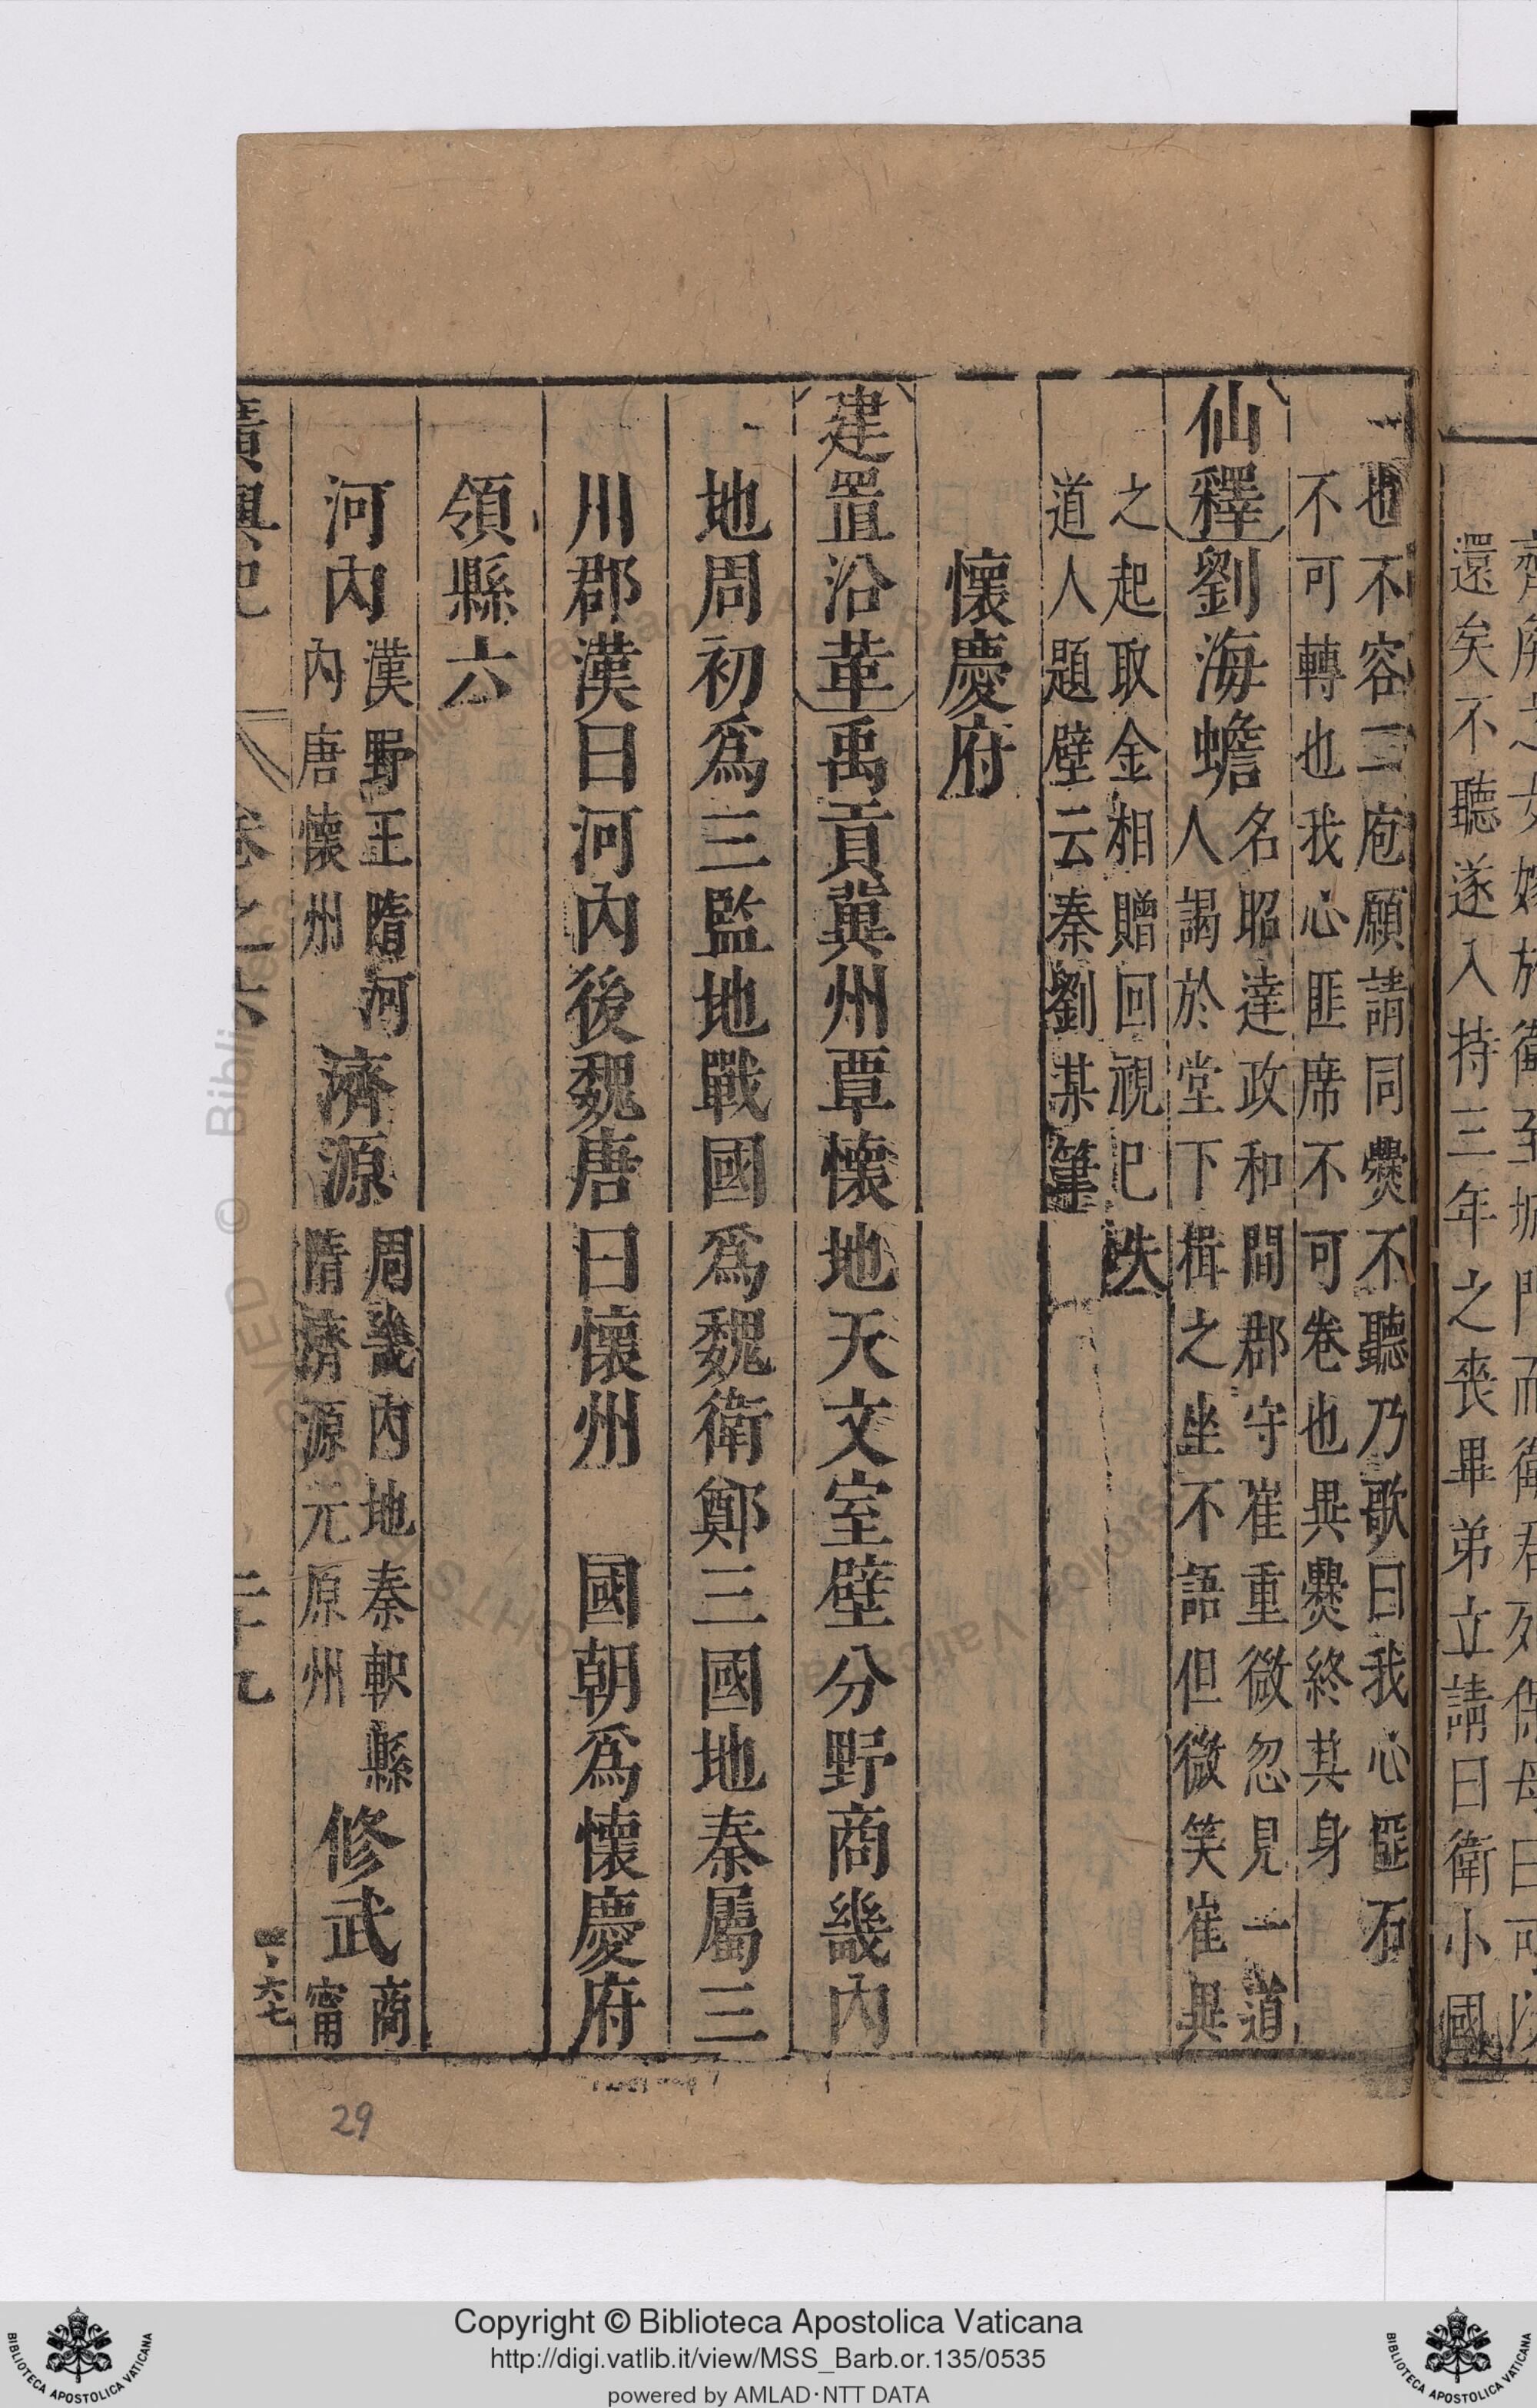 還矣不聽遂入持三年之喪畢弟立請曰衛小國
也不容二庖願請同爨不聽乃歌曰我心匪石
不可轉也我心匪席不可卷也異爨終其身
仙釋劉海蟾名昭達政和間郡守崔重微忽見一道
人謁於堂下揖之坐不語但微笑崔異
之起取金相贈回視已
道人題壁云秦劉某筆
懷慶府
建置沿革禹貢冀州覃懷地天文室壁分野商畿內
地周初爲三監地戰國爲魏衛鄭三國地秦屬三
川郡漢曰河內後魏唐曰懷州 國朝爲懷慶府
領縣六
河內漢野王隋河
內唐懷州
濟源周畿內地秦軹縣
隋濟源元原州
修武商
甯
廣輿記 卷之六 二十九
29
Copyright © Biblioteca Apostolica Vaticana
http://digi.vatlib.it/view/MSS_Barb.or.135/0535
powered by AMLAD·NTT DATA
BIBLIOTECA APOSTOLICA VATICANA
BIBLIOTECA APOSTOLICA VATICANA